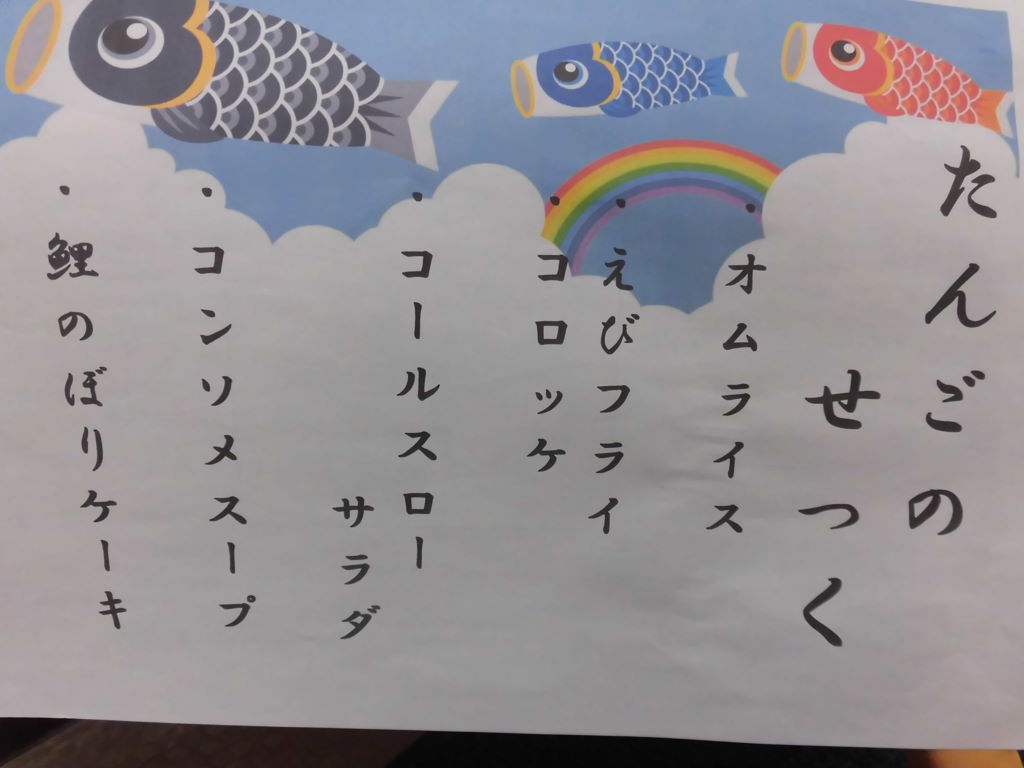 たんごの
せつく
・オムライス
・えびフライ
・コロッケ
・コールスロー
サラダ
・コンソメスープ
・鯉のぼりケーキ